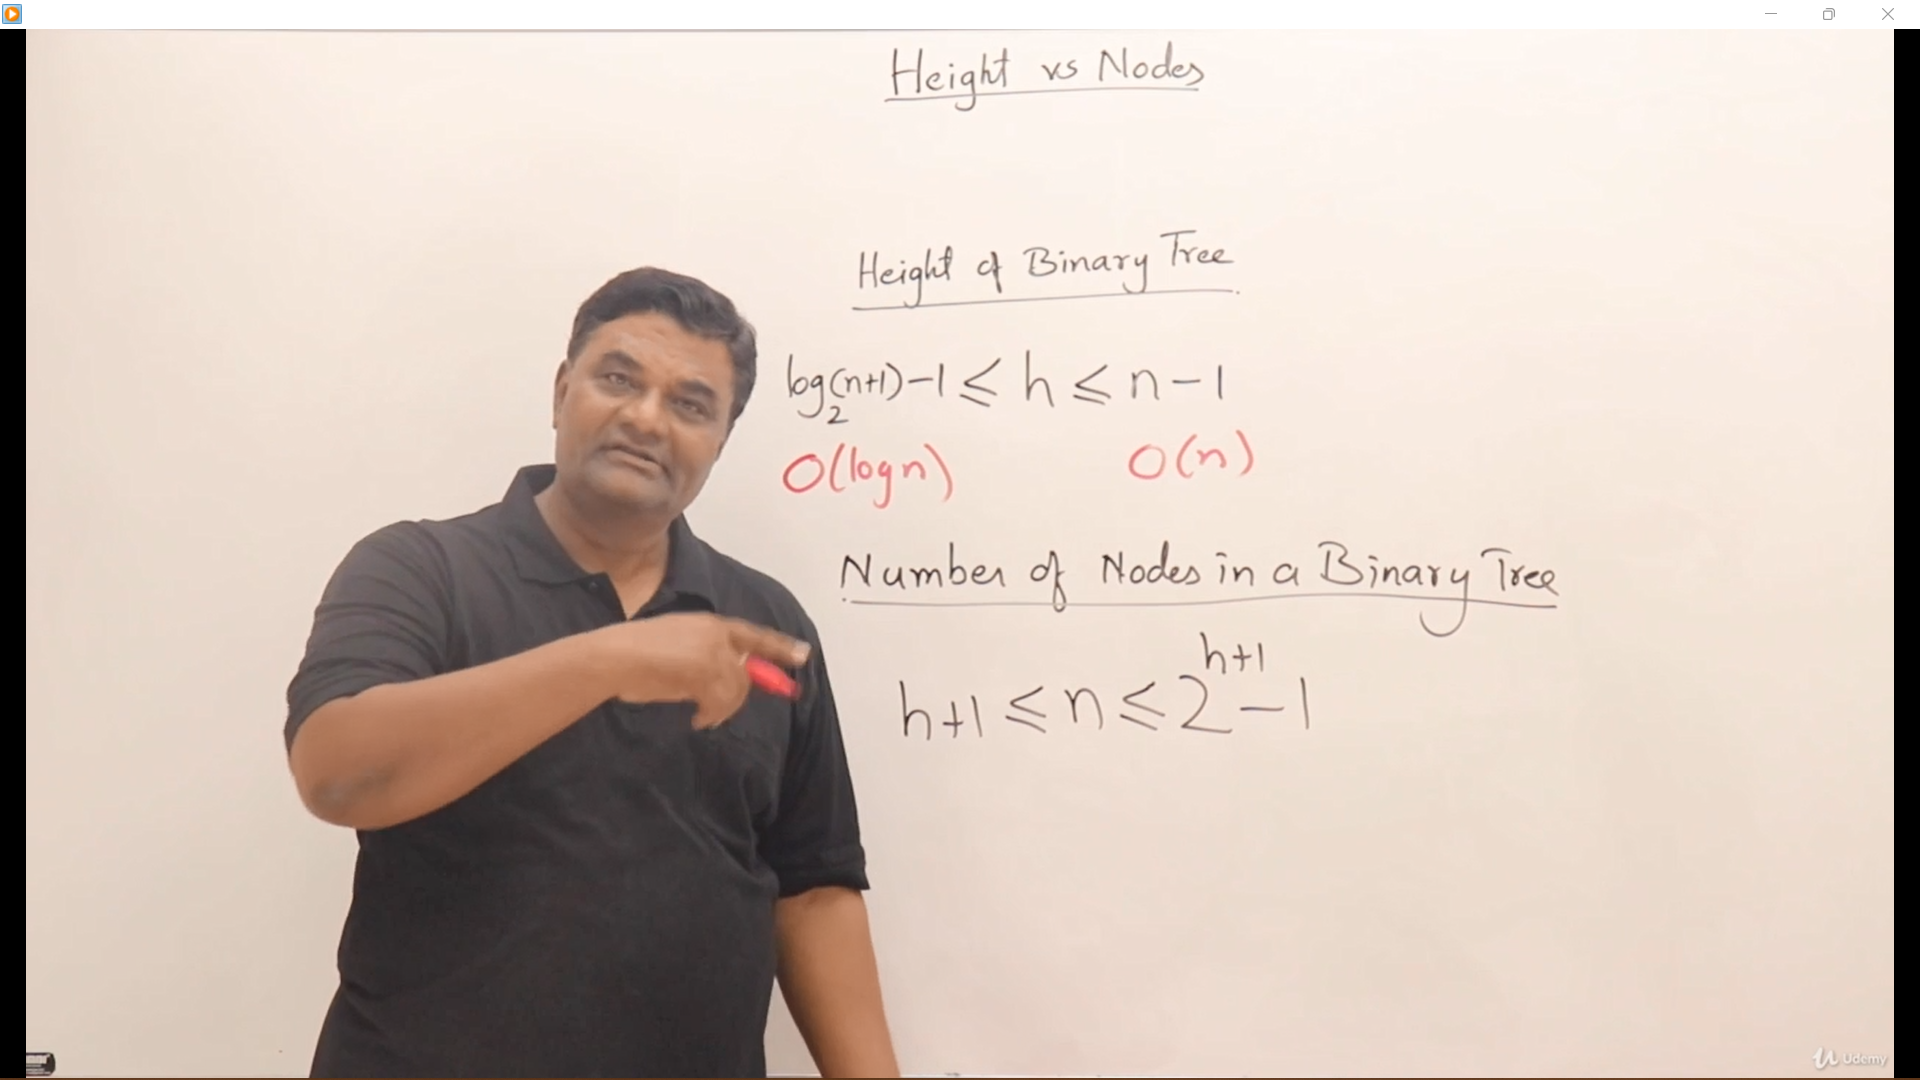 Height vs Nodes
Height of Binary Tree
log₂(n+1)-1 ≤ h ≤ n-1
O(log n) O(n)
Number of Nodes in a Binary Tree
h+1 ≤ n ≤ 2^(h+1) -1
Udemy